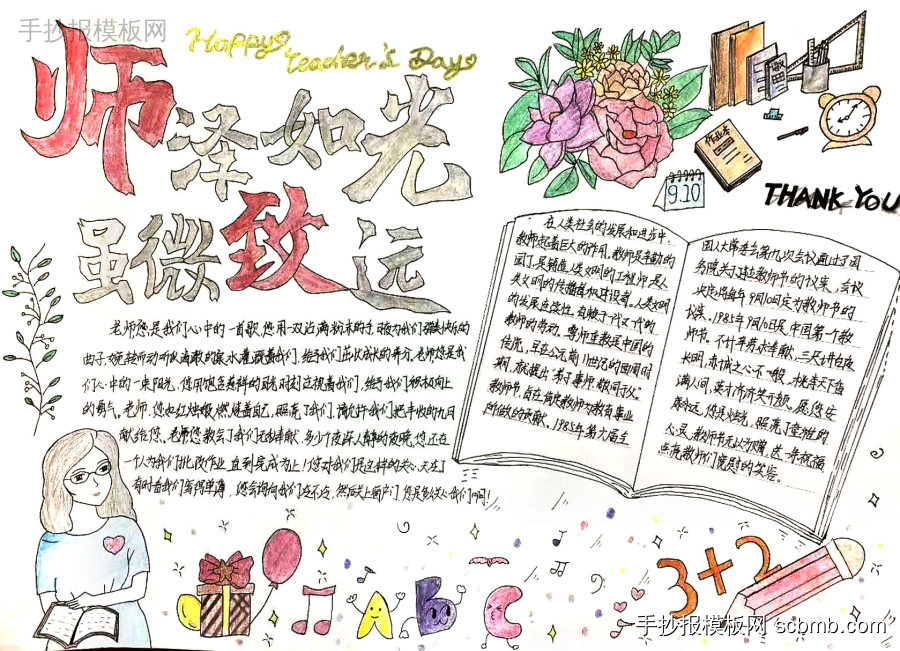 手抄报模板网
Happy
teacher's Day
师泽如光
虽微致远
9.10
作业本
THANK YOU
老师您是我们心中的一首歌,您用一双沾满粉末的手 为我们弹奏快乐的
给予我们茁壮成长的养分。老师您是我
们心中的一束阳光,您用 的目光时刻注视着我们,给予我们积极向上
的勇气。老师,您如红烛般燃烧着自己,照亮了我们,请允许我们把丰收的九月
献给您。老师您教会了我们无私奉献,多少个夜深人静的夜晚,您还在
一个人为我们批改作业,直到完成为止!您对我们是这样的关心,天冷了
有时看我们穿得单薄,您会询问我们冷不冷,然后关上窗户们,您是多么关心我们啊!
在人类社会的发展和进步中,
教师起着巨大的作用。教师是辛勤的
园丁,是铸造人类文明的工程师,是人
类文明的传播者和建设者。人类文明
的发展连续性,有赖于一代又一代的
教师的劳动。尊师重教是中国的
传统,早在公元前11世纪的西周时
期,就提出“弟子事师,敬同于父”。
教师节,旨在肯定教师为教育事业
所做的贡献。1985年第六届全
国人大常委会第九次会议通过了国
务院关于建立教师节的议案,会议
决定将每年9月10日定为教师节的
议案。1985年9月10日是中国第一个教
师节。不计辛劳求奉献,三尺讲台度
长明,赤诚之心不 ,桃李天下盈
满人间,莫 清贫 愿您安
康永远。您是烛光,照亮了 的
心灵,教师节无以为赠,送一条祝福
点亮教师们宽慰的笑容。
A B C
3+2
手抄报模板网 scbmb.com